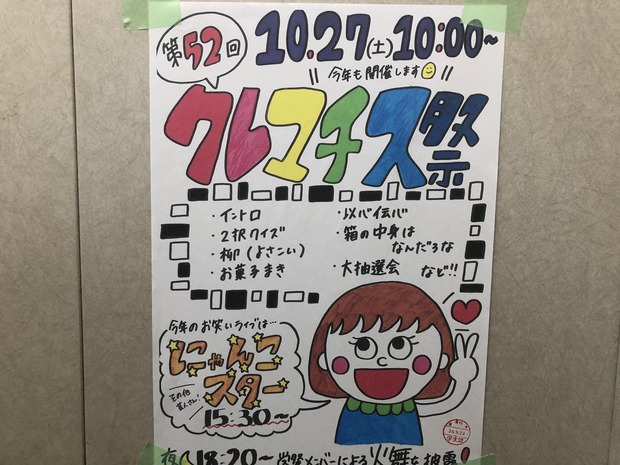 第52回
10.27(土)10:00~
今年も開催します
クレマチス祭
・イントロ
・2択クイズ
・柳(よさこい)
・お菓子まき
・以心伝心
・箱の中身は
なんだろな
・大抽選会
など!!
今年のお笑いライブは…
にゃんこ
スター
その他
芸人さん!
15:30~
夜 18:20~ 学祭メンバーによる火舞を披露!